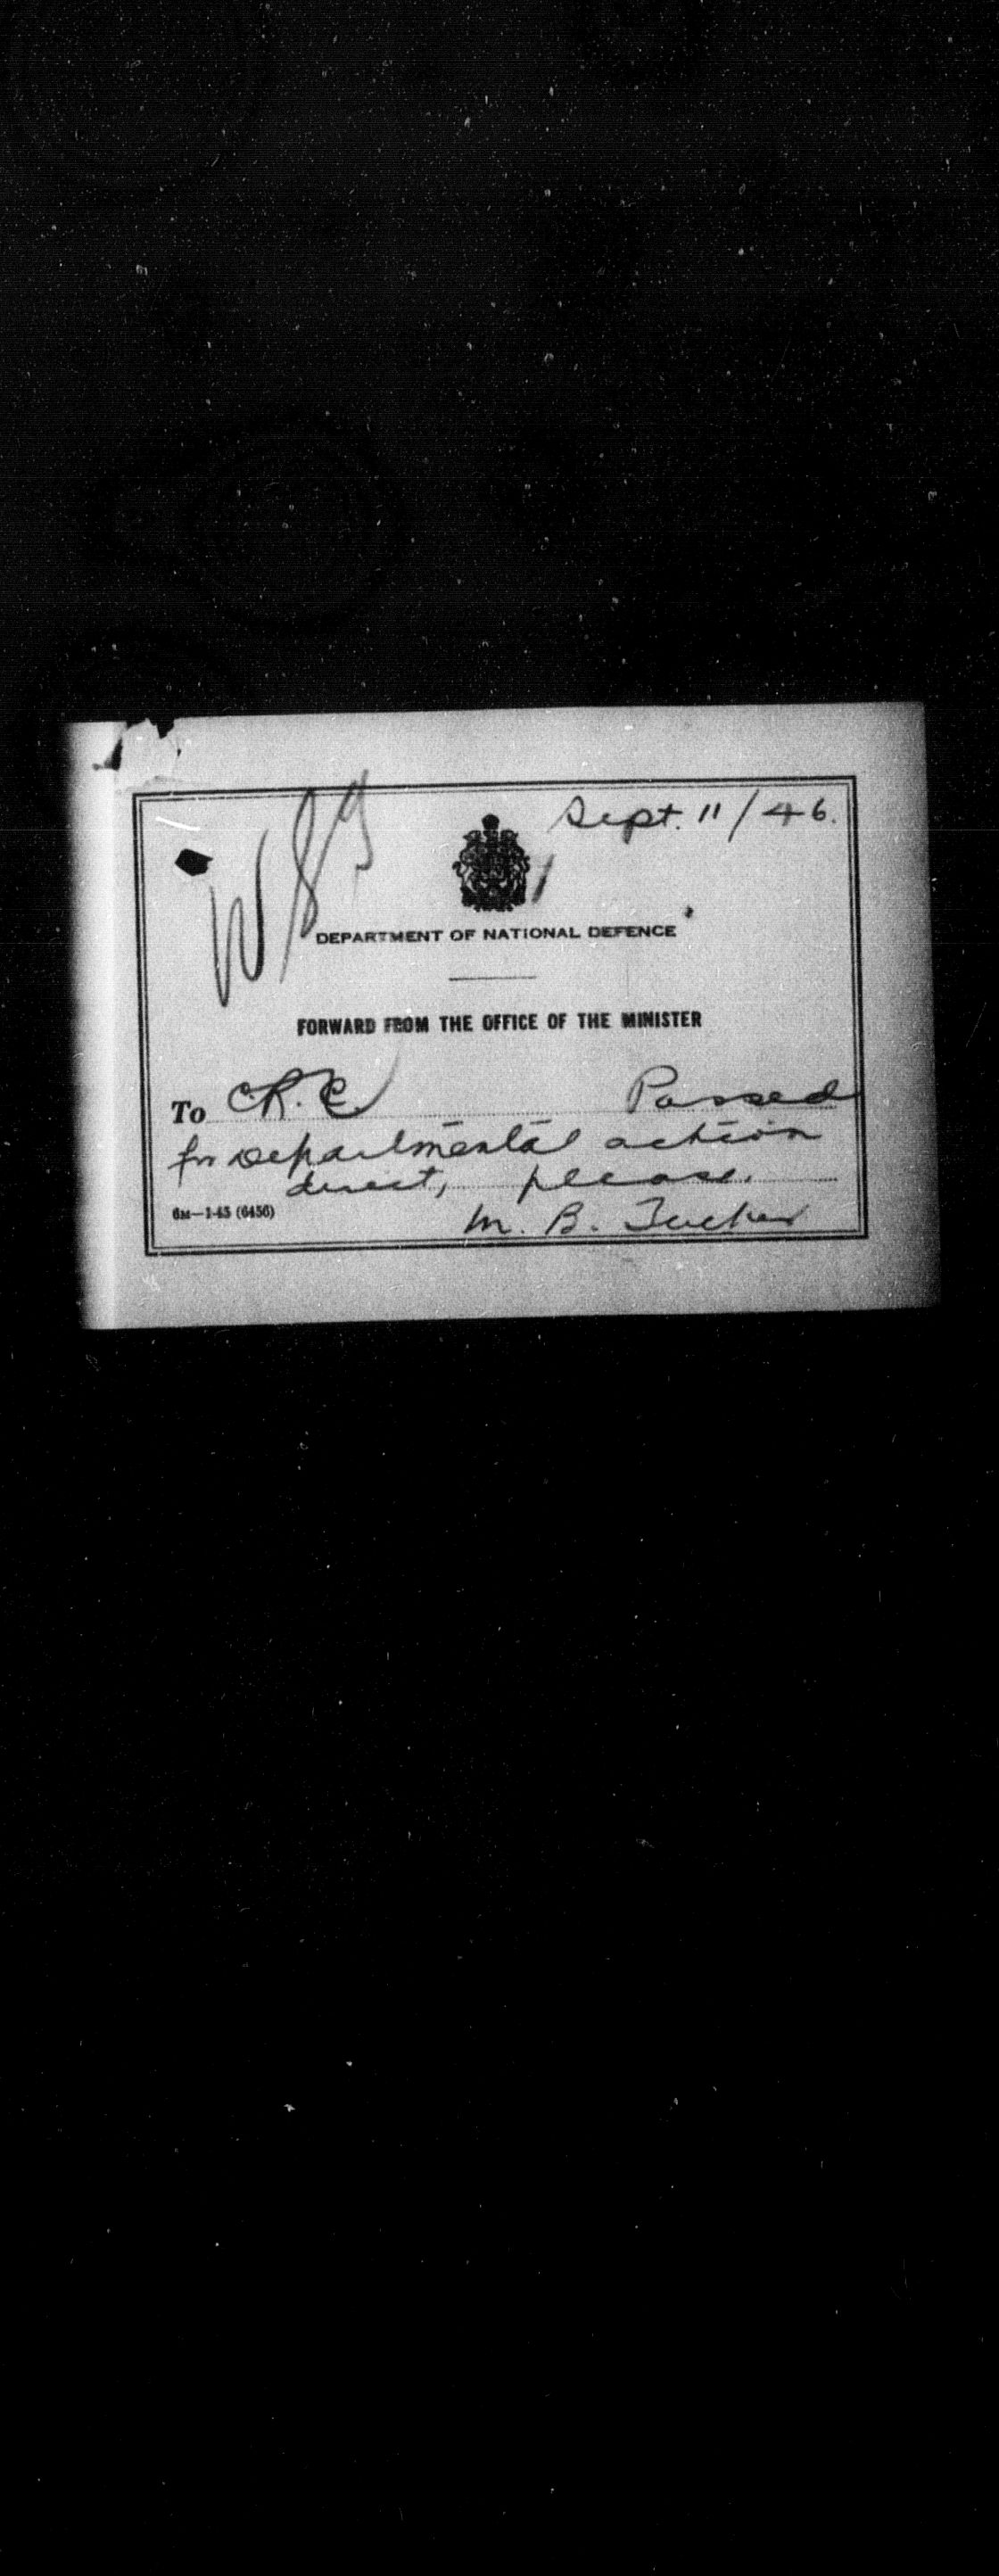 Sept. 11/46.
DEPARTMENT OF NATIONAL DEFENCE
FORWARD FROM THE OFFICE OF THE MINISTER
To C.R.C. Passed
for Departmental action
direct, please.
6M—1-45 (6456)
M. B. Tucker